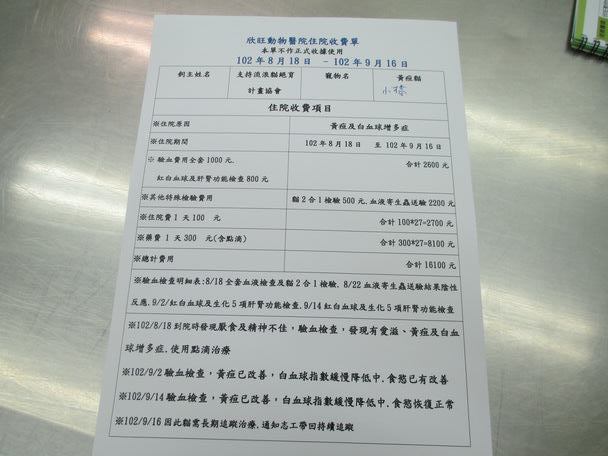 欣旺動物醫院住院收費單
本單不作正式收據使用
102 年 8 月 18 日 －102 年 9 月 16 日
飼主姓名 支持流浪貓絕育計畫協會 寵物名 黃痘貓 小樣
住院收費項目
※住院原因 黃疸及白血球增多症
※住院期間 102 年 8 月 18 日 至 102 年 9 月 16 日
※ 驗血費用全套 1000 元. 合計 2600 元
紅白血球及肝腎功能檢查 800 元
※其他特殊檢驗費用 貓 2 合 1 檢驗 500 元.血液寄生蟲送驗 2200 元
※住院費 1 天 100 元 合計 100*27=2700 元
※藥費 1 天 300 元(含點滴) 合計 300*27=8100 元
※總計費用 合計 16100 元
※驗血檢查明細表:8/18 全套血液檢查及貓 2 合 1 檢驗. 8/22 血液寄生蟲送驗結果陰性
反應.9/2/紅白血球及生化 5 項肝腎功能檢查.9/14 紅白血球及生化 5 項肝腎功能檢查
※102/8/18 到院時發現厭食及精神不佳，驗血檢查，發現有愛滋、黃疸及白血
球增多症.使用點滴治療
※102/9/2 驗血檢查，黃疸已改善，白血球指數緩慢降低中.食慾已有改善
※102/9/14 驗血檢查，黃疸已改善，白血球指數緩慢降低中.食慾恢復正常
※102/9/16 因此貓需長期追蹤治療.通知志工帶回持續追蹤